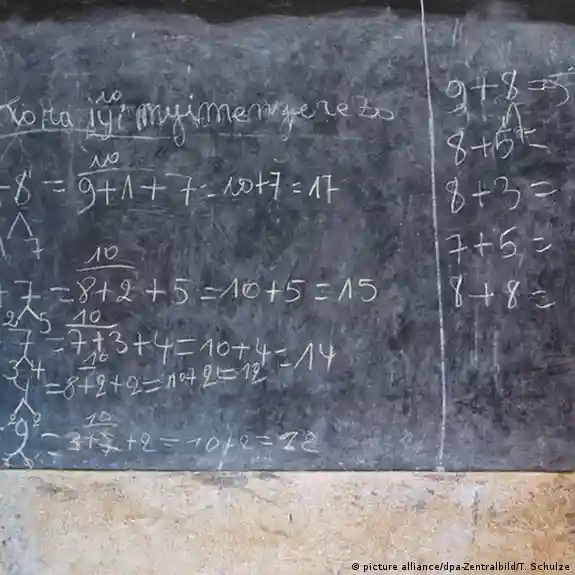 10
Kora iyi myimenyerezo
10
+8 = 9+1+7 = 10+7 = 17
1 7
10
+7 = 8+2+5 = 10+5 = 15
2 5
10
7 = 7+3+4 = 10+4 = 14
3 4
10
4 = 8+2+2 = 10+2 = 12
2 2
10
9 = +2 = 10+2 = 12
9+8 =
1 7
8+5 =
8+3 =
7+5 =
8+8 =
© picture alliance/dpa-Zentralbild/T. Schulze